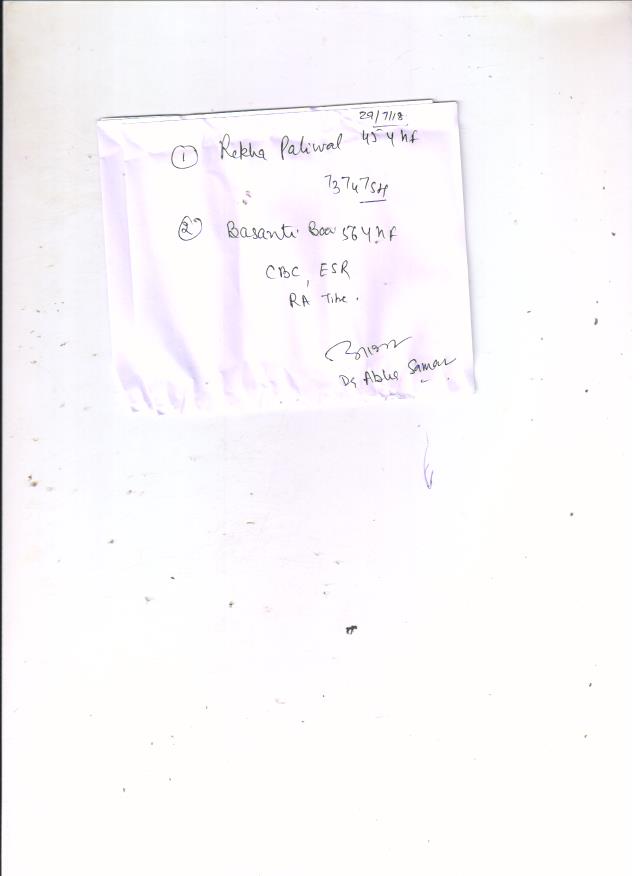 29/7/18
① Rekha Paliwal 45 y hf
T3 T4 TSH
② Basanti Baa 56 y hf
CBC, ESR
RA Titre.
Dr Abha